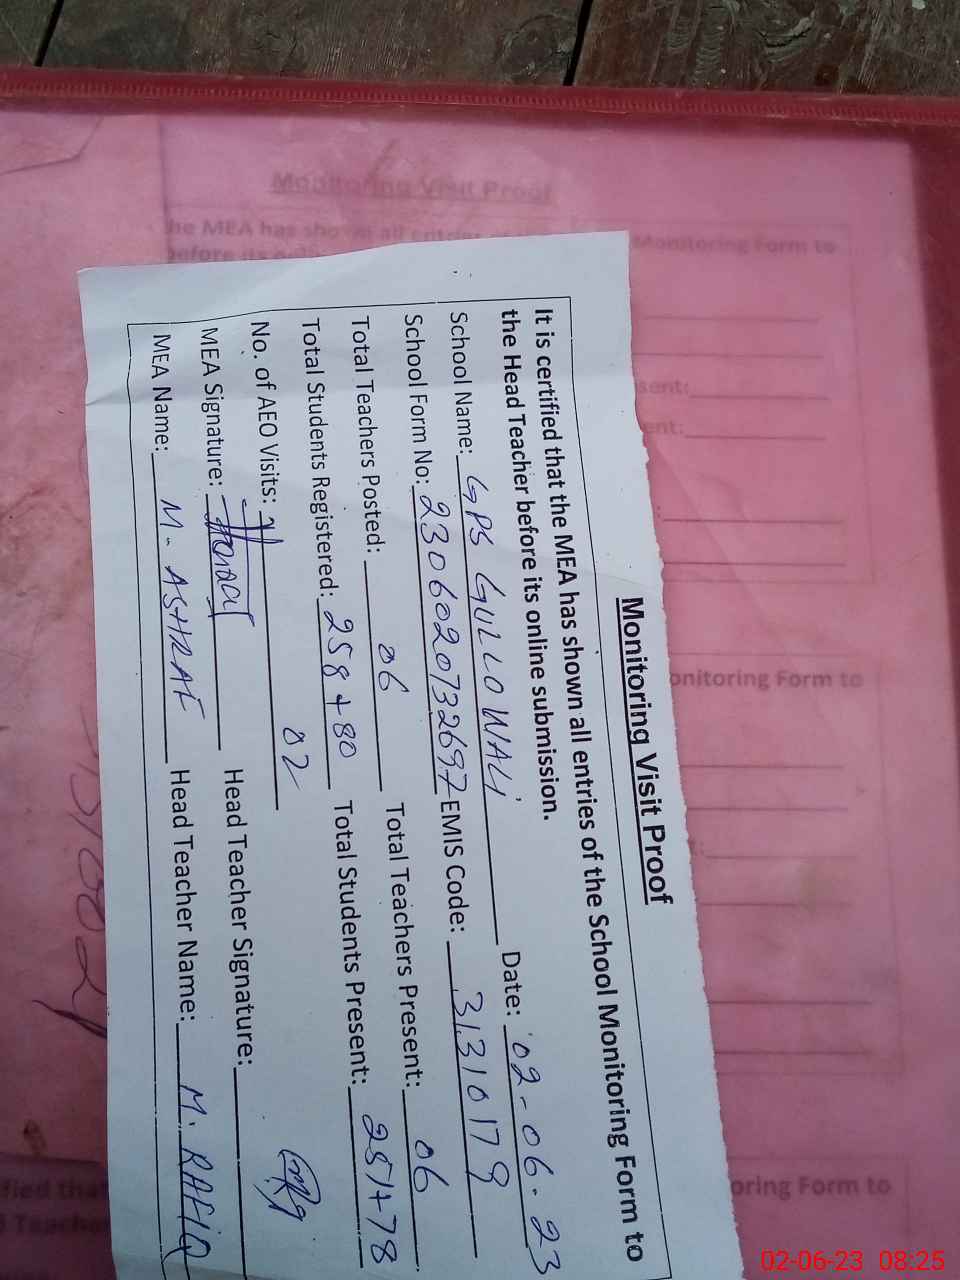 Monitoring Visit Proof
It is certified that the MEA has shown all entries of the School Monitoring Form to
the Head Teacher before its online submission.
School Name: GPS GULLO WALI Date: 02-06-23
School Form No: 2306020732697 EMIS Code: 31310179
Total Teachers Posted: 06 Total Teachers Present: 06
Total Students Registered: 258+80 Total Students Present: 251+78
No. of AEO Visits: 02
MEA Signature: Head Teacher Signature:
MEA Name: M. ASHRAF Head Teacher Name: M. RAFIQ
Monitoring Visit Proof
he MEA has shown all entries
Monitoring Form to
before its
sent:
ent:
onitoring Form to
oring Form to
fied that
Teacher
02-06-23 08:25